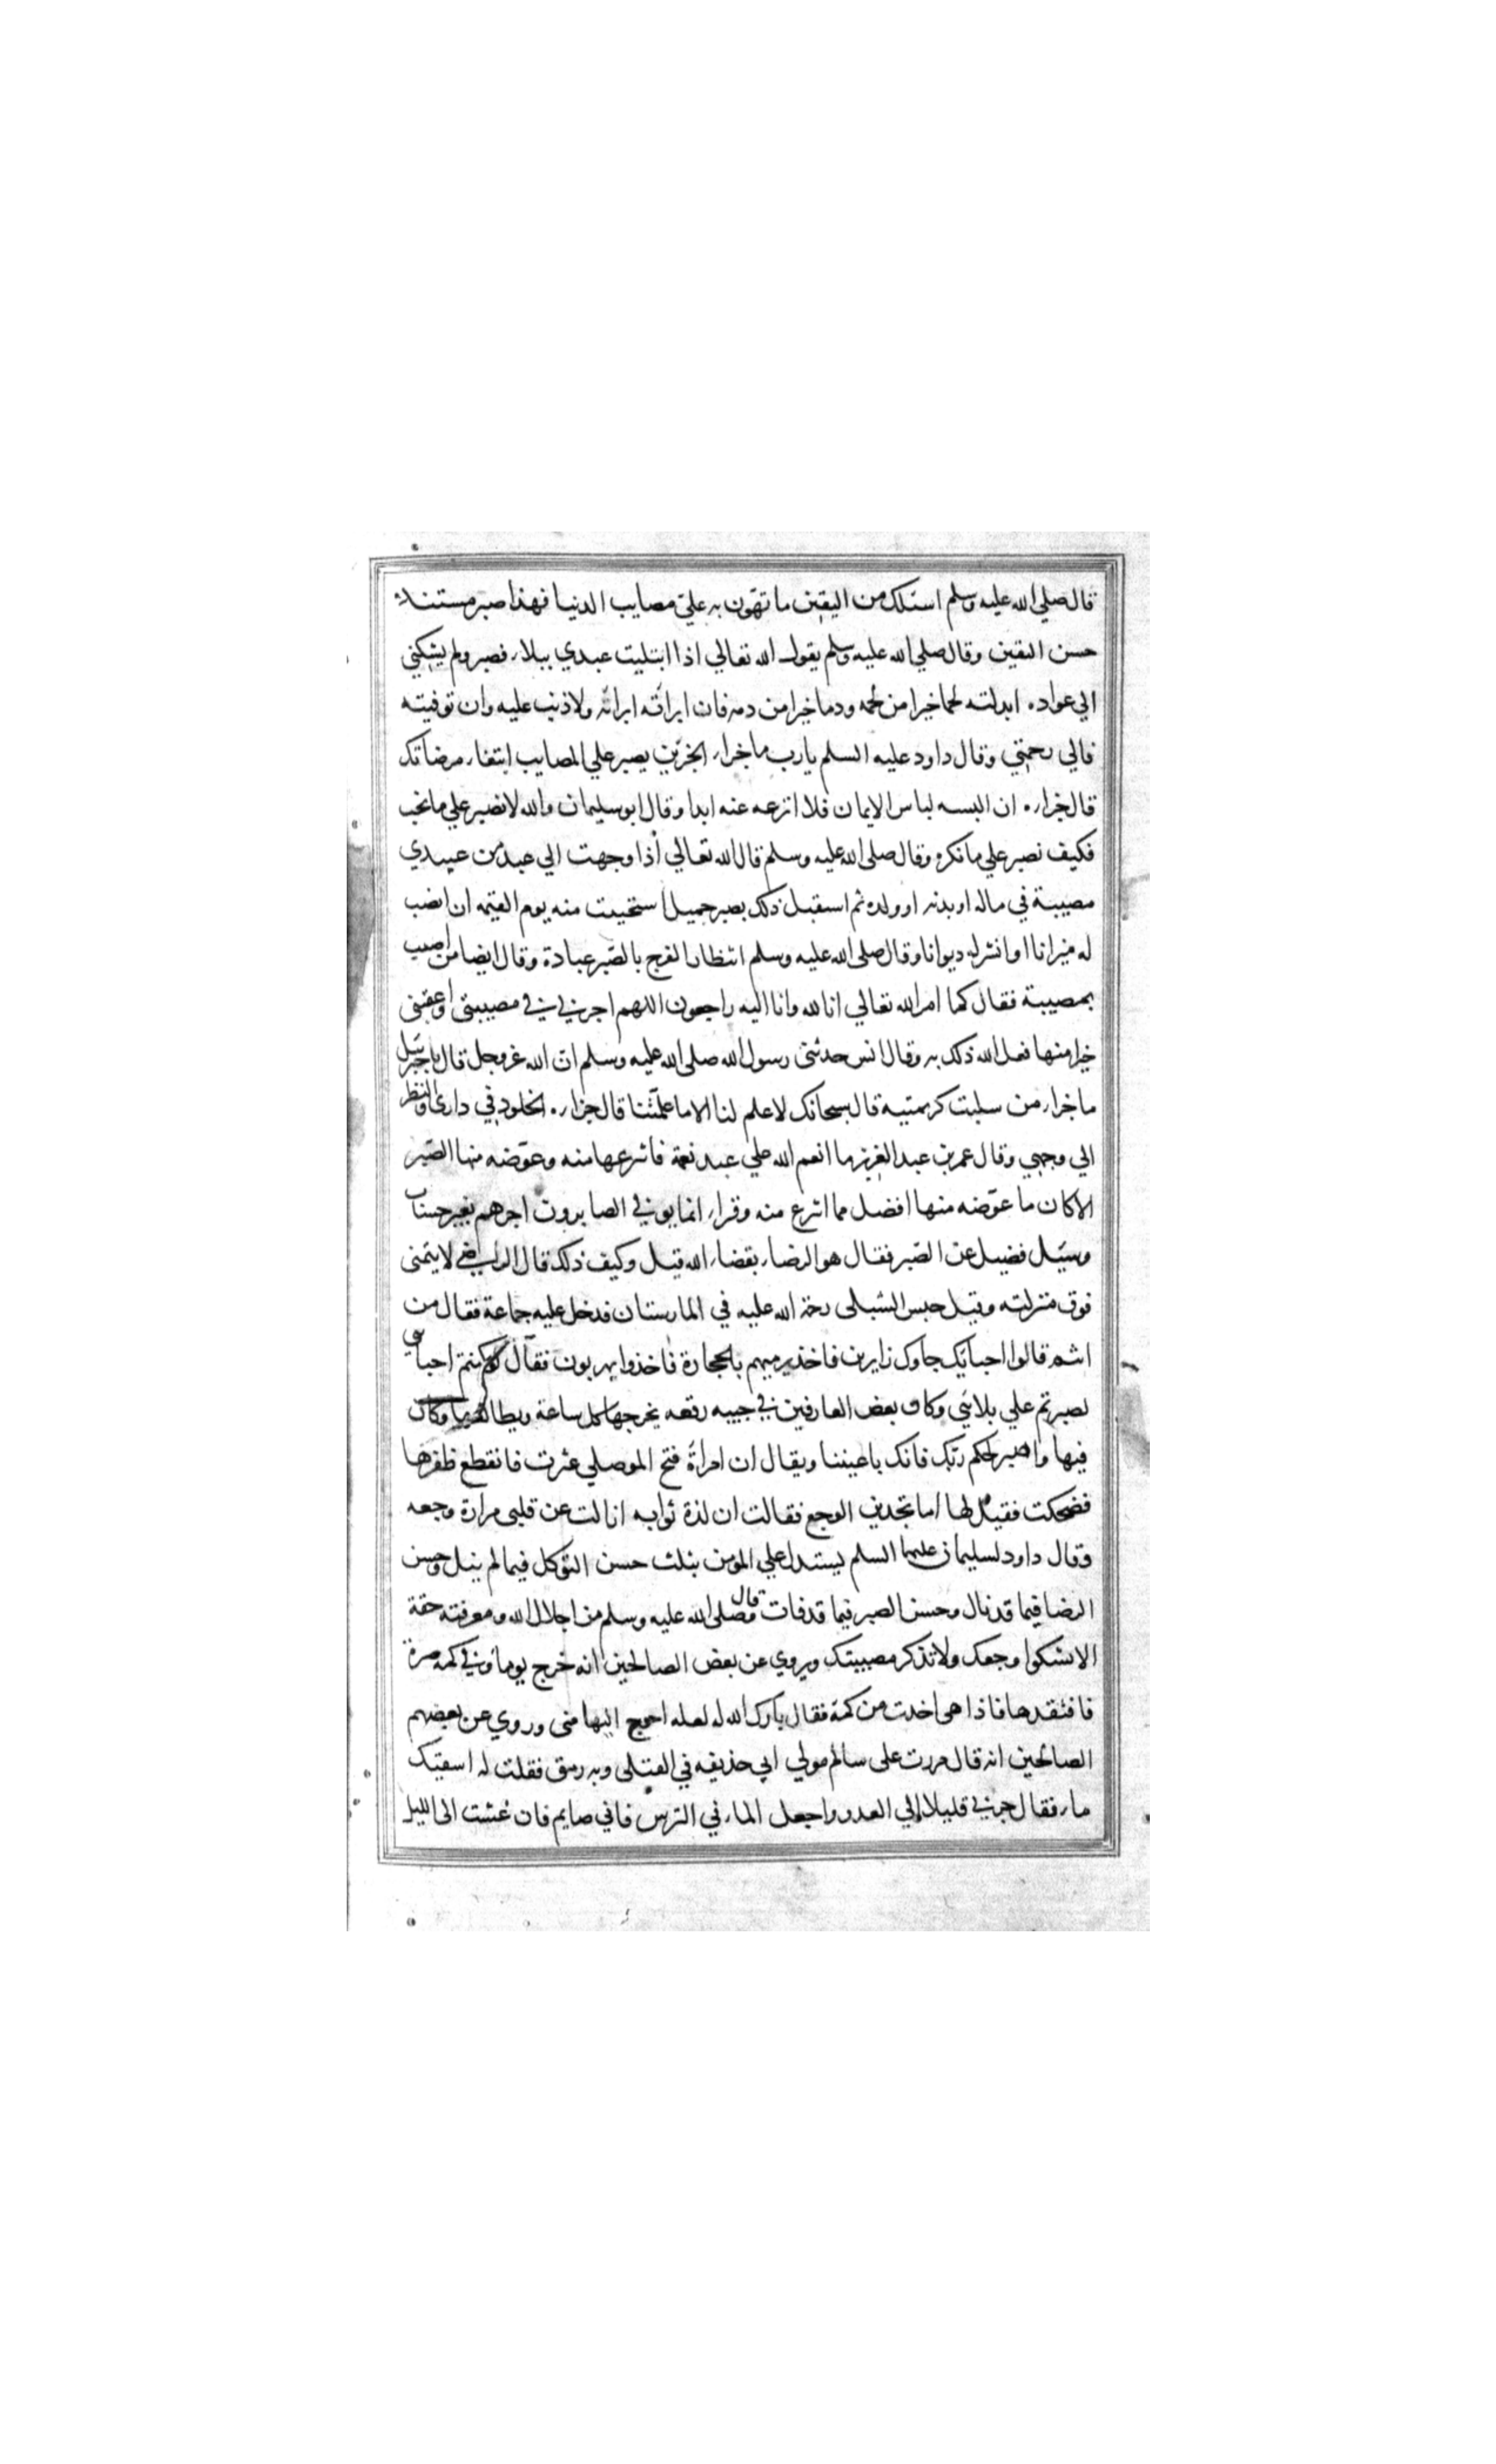 قال صلي الله عليه وسلم اسئلك من اليقين ما تهون به علي مصايب الدنيا فهذا صبر مستنده
حسن اليقين وقال صلي الله عليه وسلم يقول الله تعالي اذا ابتليت عبدي ببلاء فصبر ولم يشكني
الي عواده ابدلته لحما خيرا من لحمه ودما خيرا من دمه فان ابرائه ابرائه ولا ذنب عليه وان توفيته
فالي رحمتي وقال داود عليه السلم يارب ما جزاء الحزين يصبر علي المصايب ابتغاء مرضاتك
قال جزاره ان البسه لباس الايمان فلا انزعه عنه ابدا وقال ابو سليمان والله لا نصبر علي ما نحب
فكيف نصبر علي ما نكره وقال صلي الله عليه وسلم قال الله تعالي أذا وجهت الي عبد من عبيدي
مصيبة في ماله او بدنه او ولده ثم استقبل ذلك بصبر جميل استحييت منه يوم القيمه ان انصب
له ميزانا او انشر له ديوانا وقال صلي الله عليه وسلم انتظار الفرج بالصبر عبادة وقال ايضا من اصيب
بمصيبة فقال كما امر الله تعالي انا لله وانا اليه راجعون اللهم اجرني في مصيبتي واعقبني
خيرا منها فعل الله ذلك به وقال انس حدثني رسول الله صلي الله عليه وسلم ان الله عز وجل قال يا جبرئيل
ما جزاء من سلبت كريمتيه قال سبحانك لا علم لنا الا ما علمتنا قال جزاره الخلود في داري والنظر
الي وجهي وقال عمر بن عبد العزيز ما انعم الله علي عبد نعمة فانتزعها منه وعوضه منها الصبر
الا كان ما عوضه منها افضل مما انتزع منه وقراء انما يوفي الصابرون اجرهم بغير حساب
وسئيل فضيل عن الصبر فقال هو الرضاء بقضاء الله قيل وكيف ذلك قال الراضي لا يتمنى
فوق منزلته وقيل حبس الشبلى رحمة الله عليه في المارستان فدخل عليه جماعة فقال من
انتم قالوا احبائك جاوك زايرين فاخذ يرميهم بالحجارة فاخذوا يهربون فقال لو كنتم احبائي
لصبرتم علي بلائي وكان بعض العارفين في جيبه رقعه يخرجها كل ساعة ويطالعها وكان
فيها واصبر لحكم ربك فانك باعيننا ويقال ان امراة فتح الموصلي عثرت فانقطع ظفرها
فضحكت فقيل لها اما تجدين الوجع فقالت ان لذة ثوابه ازالت عن قلبي مرارة وجعه
وقال داود لسليمان عليهما السلم يستدل علي المؤمن بثلث حسن التوكل فيما لم ينل وحسن
الرضا فيما قد نال وحسن الصبر فيما قد فات وقال صلي الله عليه وسلم من اجلال الله ومعرفته حقه
الا تشكوا وجعك ولا تذكر مصيبتك ويروي عن بعض الصالحين انه خرج يوما وفي كمه صرة
فافتقدها فاذا هي اخذت من كمه فقال بارك الله له لعله احوج اليها مني وروي عن بعضهم
الصالحين انه قال مررت على سالم مولي ابي حذيفه في القتلى وبه رمق فقلت له اسقيك
ماء فقال جرني قليلا إلي العدو واجعل الماء في الترس فاني صايم فان عشت الى الليل